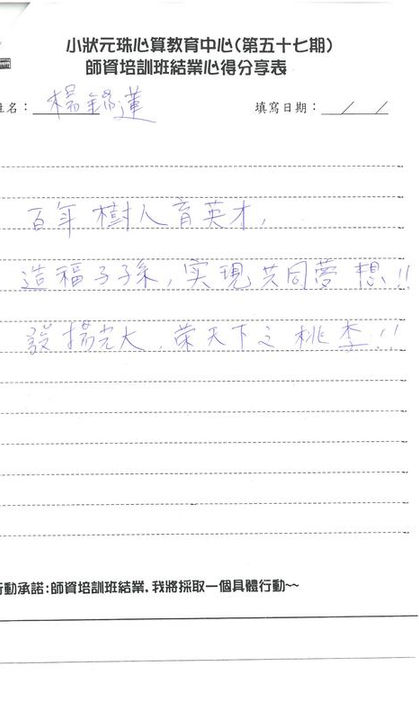 小狀元珠心算教育中心(第五十七期)
師資培訓班結業心得分享表
姓名: 楊錦蓮 填寫日期: / /
百年樹人育英才,
造福子子孫,实現共同夢想!!
發揚光大.榮天下之桃李!!
行動承諾:師資培訓班結業,我將採取一個具體行動~~